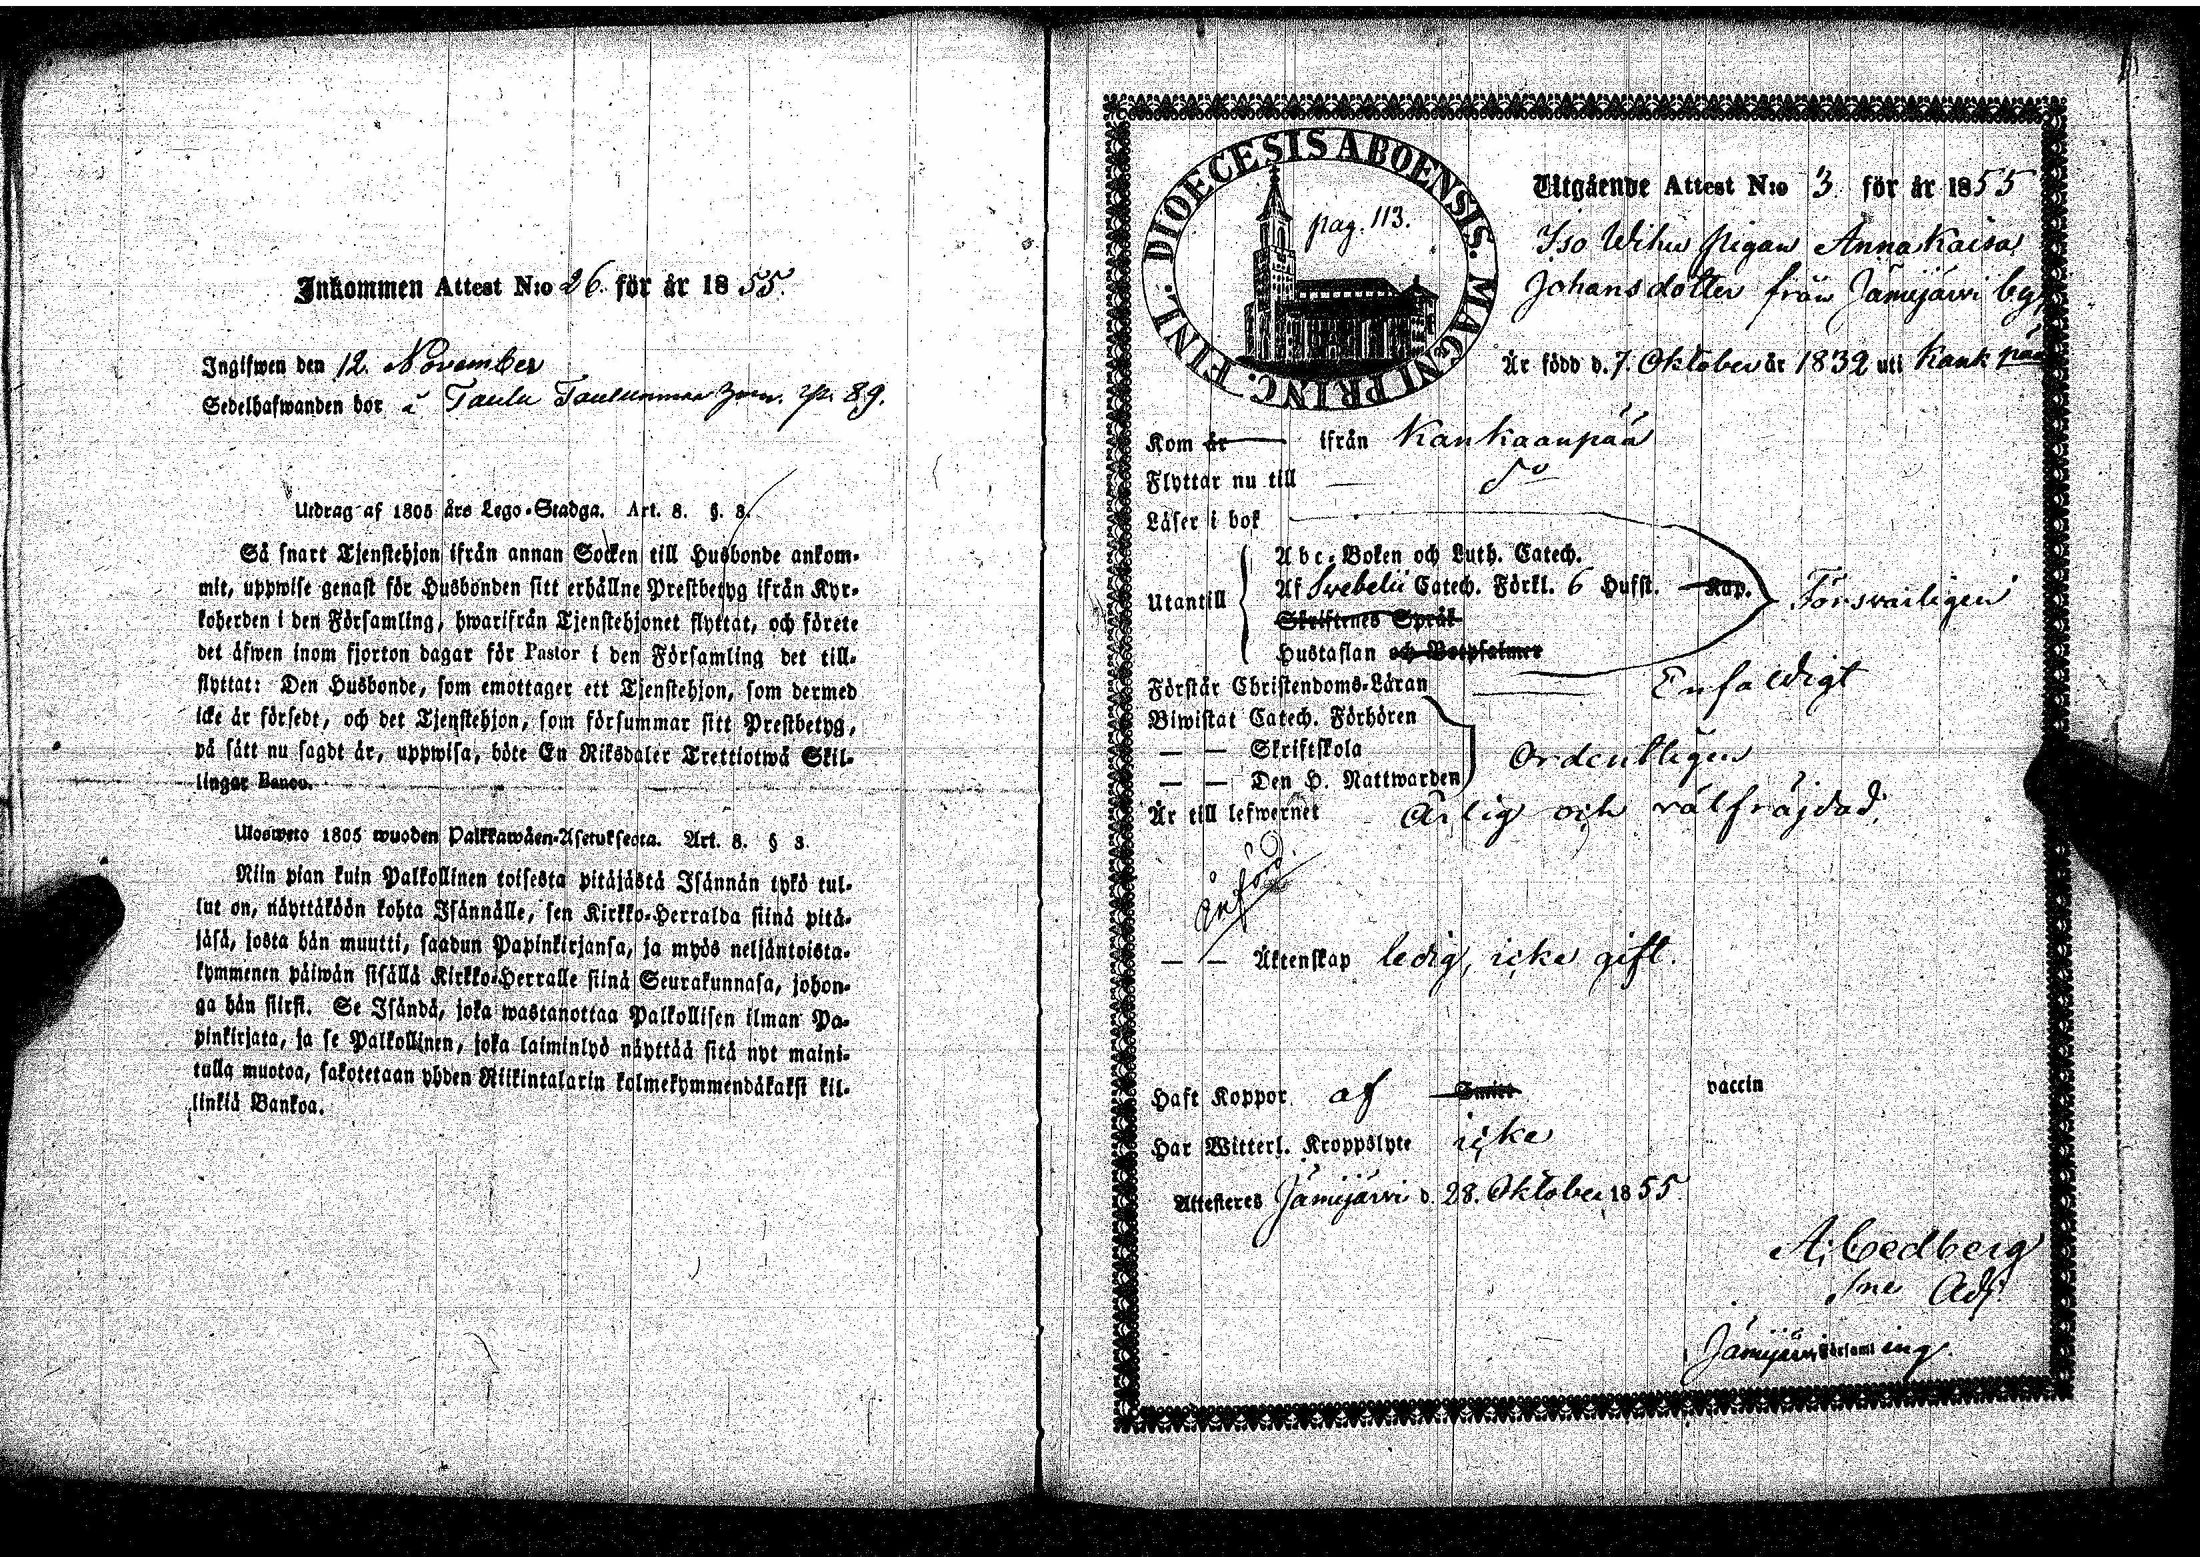 Inkommen Attest N:o 26. för år 1855.
Ingifwen den 12. November
Sedelhafwanden bor å Taulu 89.
Utdrag af 1805 års Lego-Stadga. Art. 8. §. 3.
Så snart Tjenstehjon ifrån annan Socken till Husbonde ankom-
mit, uppwise genast för Husbonden sitt erhållne Prestbetyg ifrån Kyr-
koherden i den Församling, hwarifrån Tjenstehjonet flyttat, och förete
det äfwen inom fjorton dagar för Pastor i den Församling det till-
flyttat: Den Husbonde, som emottager ett Tjenstehjon, som dermed
icke är försedt, och det Tjenstehjon, som försummar sitt Prestbetyg,
på sätt nu sagdt är, uppwisa, böte En Riksdaler Trettiotwå Skil-
lingar Banco.
Ulosweto 1805 wuoden Palkkawäen-Asetuksesta. Art. 8. § 3.
Niin pian kuin Palkollinen toisesta pitäjästä Isännän tykö tul-
lut on, näyttäköön kohta Isännälle, sen Kirkko-Herralda siinä pitä-
jäsä, josta hän muutti, saadun Papinkirjansa, ja myös neljäntoista-
kymmenen päiwän sisällä Kirkko-Herralle siinä Seurakunnasa, johon-
ga hän siirsi. Se Isändä, joka wastanottaa Palkollisen ilman Pa-
pinkirjata, ja se Palkollinen, joka laiminlyö näyttää sitä nyt maini-
tulla muotoa, sakotetaan yhden Riikintalarin kolmekymmendäkaksi kil-
linkiä Bankoa.
DIOECESIS ABOENSIS. MAGNI PRINC. FINL.
pag. 113.
Utgående Attest N:o 3 för år 1855
Iso Wihu Pigan Anna Kaisa
Johansdotter från Jämijärvi by
Är född d. 7. Oktober år 1832 uti Kankpää
Kom år ifrån Kankaanpää
Flyttar nu till do
Läser i bok
Utantill
Abc-Boken och Luth. Catech.
Af Svebelii Catech. Förkl. 6 Hufst. Kap.
Skriftenes Språk
Hustaflan och Botpsalmer
Försvarligen
Förstår Christendoms-Läran Enfaldigt
Biwistat Catech. Förhören
— — Skriftskola
— — Den H. Nattwarden
Ordentligen
Är till lefwernet Ärlig och välfräjdad.
införd.
— — Äktenskap ledig, icke gift.
Haft Koppor af Smitt vaccin
Har Witterl. Kroppslyte icke
Attesteres Jämijärvi d. 28. Oktober 1855
A. Cedberg
Adj.
Jämijärvi Församling.